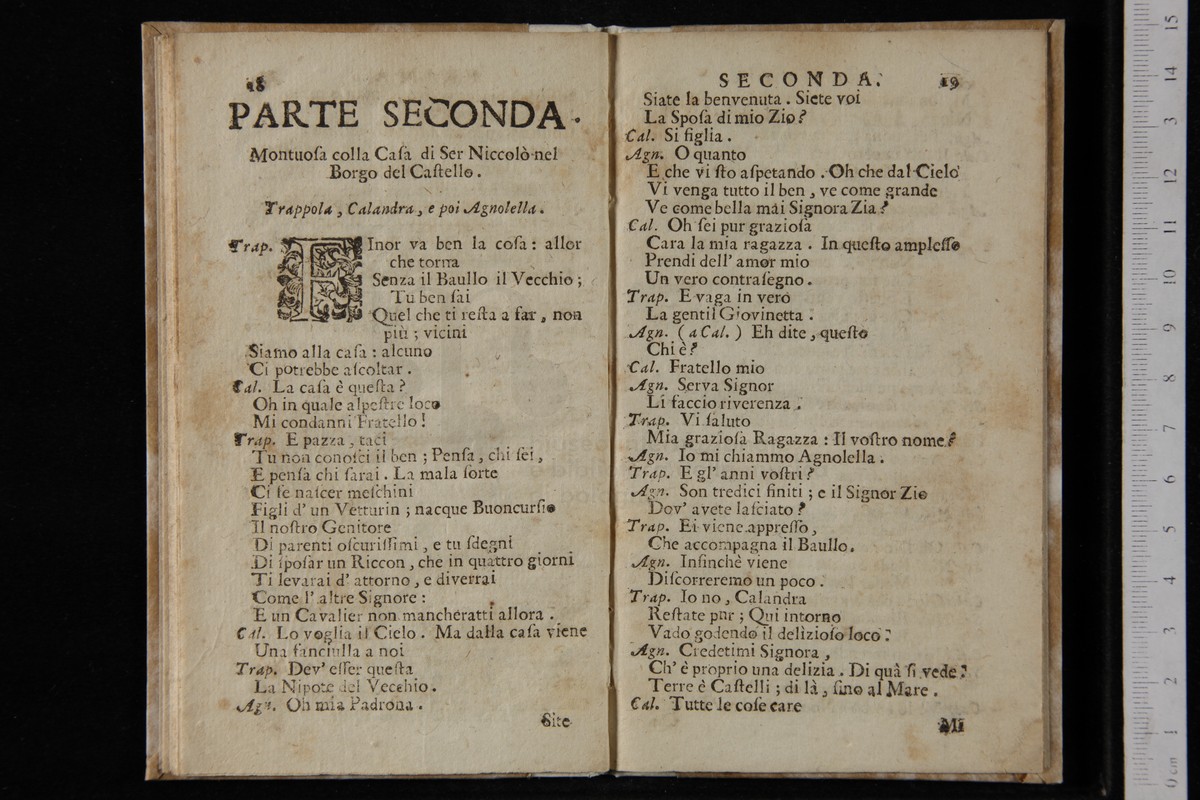 18
PARTE SECONDA.
Montuoſa colla Caſa di Ser Niccolò nel
Borgo del Caſtello.
Trappola, Calandra, e poi Agnolella.
Trap. FInor va ben la coſa: allor
che torna
Senza il Baullo il Vecchio;
Tu ben ſai
Quel che ti reſta a far, non
più; vicini
Siamo alla caſa: alcuno
Ci potrebbe aſcoltar.
Cal. La caſa è queſta?
Oh in quale alpeſtre loco
Mi condanni Fratello!
Trap. E pazza, taci
Tu non conoſci il ben; Penſa, chi ſei,
E penſa chi ſarai. La mala ſorte
Ci fe naſcer meſchini
Figli d' un Vetturin; nacque Buoncurſio
Il noſtro Genitore
Di parenti oſcuriſſimi, e tu ſdegni
Di ſpoſar un Riccon, che in quattro giorni
Ti levarai d' attorno, e diverrai
Come l' altre Signore:
E un Cavalier non mancheratti allora.
Cal. Lo voglia il Cielo. Ma dalla caſa viene
Una fanciulla a noi
Trap. Dev' eſſer queſta
La Nipote del Vecchio.
Agn. Oh mia Padrona.
Site
SECONDA.
19
Siate la benvenuta. Siete voi
La Spoſa di mio Zio?
Cal. Si figlia.
Agn. O quanto
E che vi ſto aſpetando. Oh che dal Cielo
Vi venga tutto il ben, ve come grande
Ve come bella mai Signora Zia?
Cal. Oh ſei pur grazioſa
Cara la mia ragazza. In queſto ampleſſo
Prendi dell' amor mio
Un vero contraſegno.
Trap. E vaga in vero
La gentil Giovinetta.
Agn. (a Cal.) Eh dite, queſto
Chi è?
Cal. Fratello mio
Agn. Serva Signor
Li faccio riverenza.
Trap. Vi ſaluto
Mia grazioſa Ragazza: Il voſtro nome?
Agn. Io mi chiammo Agnolella.
Trap. E gl' anni voſtri?
Agn. Son tredici finiti; e il Signor Zio
Dov' avete laſciato?
Trap. Ei viene appreſſo,
Che accompagna il Baullo.
Agn. Infinchè viene
Diſcorreremo un poco.
Trap. Io no, Calandra
Reſtate pur; Qui intorno
Vado godendo il delizioſo loco:
Agn. Credetimi Signora,
Ch' è proprio una delizia. Di quà ſi vede:
Terre è Caſtelli; di là, ſino al Mare.
Cal. Tutte le coſe care
Mi